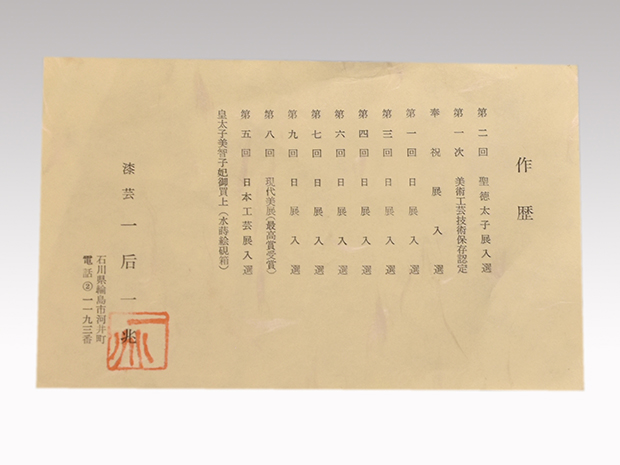 作歴
第二回 聖徳太子展入選
第一次 美術工芸技術保存認定
奉祝展入選
第一回日展入選
第三回日展入選
第四回日展入選
第六回日展入選
第七回日展入選
第九回日展入選
第八回 現代美展(最高賞受賞)
第五回 日本工芸展入選
皇太子美智子妃御買上(水蒔絵硯箱)
漆芸 一后一兆
石川県輪島市河井町
電話②一一九三番